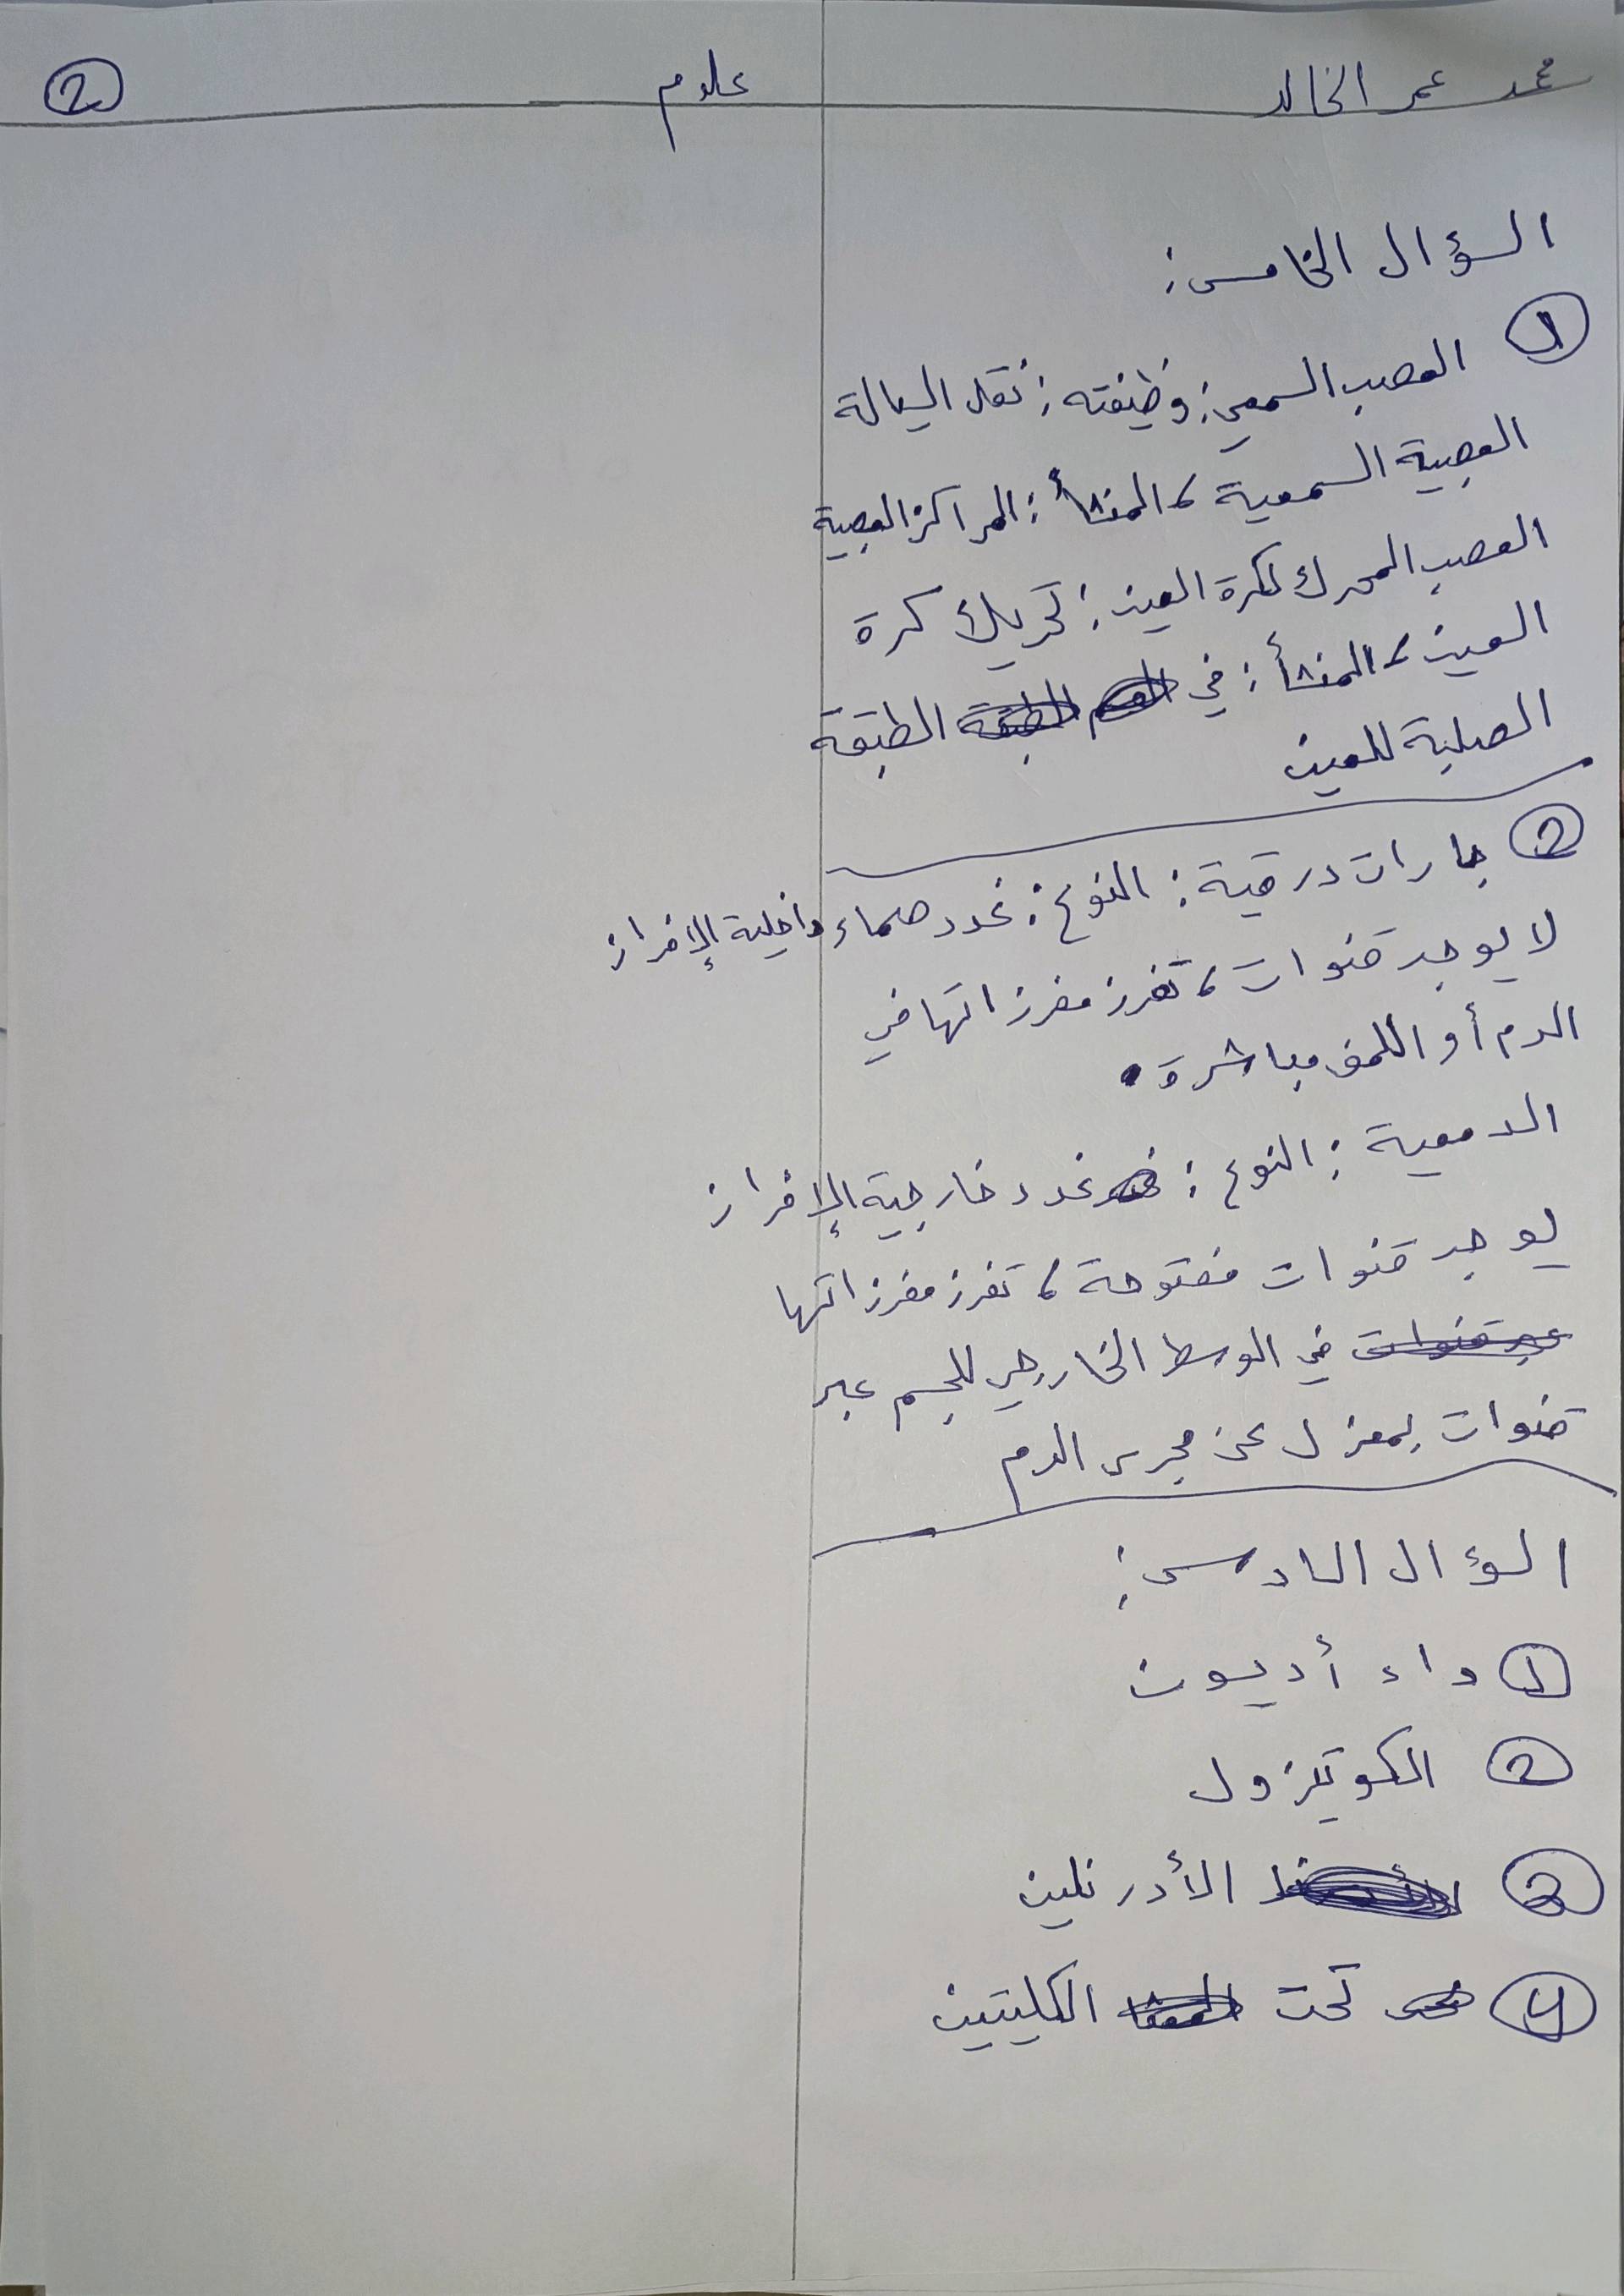 محمد عمر الخالد
علوم
2
السؤال الخامس:
1 العصب السمعي: وظيفته: نقل السيالة
العصبية السمعية، المنشأ: المراكز العصبية
العصب المحرك لكرة العين: تحريك كرة
العين، المنشأ: في الطبقة
الصلبة للعين
2 جارات درقية: النوع: غدد صماء داخلية الإفراز
لا يوجد قنوات، تفرز مفرزاتها في
الدم أو اللمف مباشرة.
الدمعية: النوع: غدد خارجية الإفراز
يوجد قنوات مفتوحة، تفرز مفرزاتها
عبر قنوات في الوسط الخارجي للجسم عبر
قنوات بمعزل عن مجرى الدم
السؤال السادس:
1 داء أديسون
2 الكوتيزول
3 الأدرنلين
4 تحت الكليتين